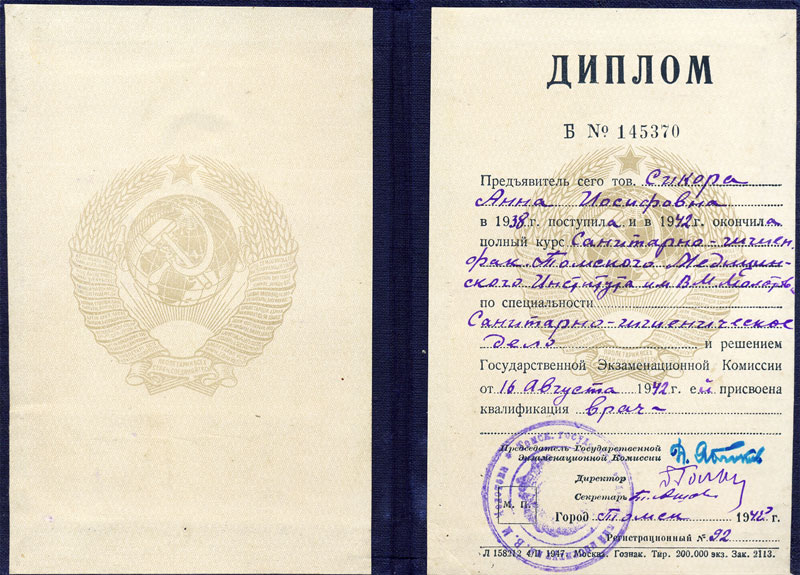 ДИПЛОМ
Б № 145370
Предъявитель сего тов. Сикора
Анна Иосифовна
в 1938 г. поступила и в 1942 г. окончила
полный курс Санитарно-гигиен.
фак. Томского Медицин-
ского Института им В М Молотова
по специальности
Санитарно-гигиеническое
дело и решением
Государственной Экзаменационной Комиссии
от 16 Августа 1942 г. ей присвоена
квалификация врач-
Председатель Государственной
Экзаменационной Комиссии
Директор
Секретарь
М. П.
Город Томск 1942 г.
Регистрационный № 92
Л 158212 4/II 1947. Москва. Гознак. Тир. 200.000 экз. Зак. 2113.